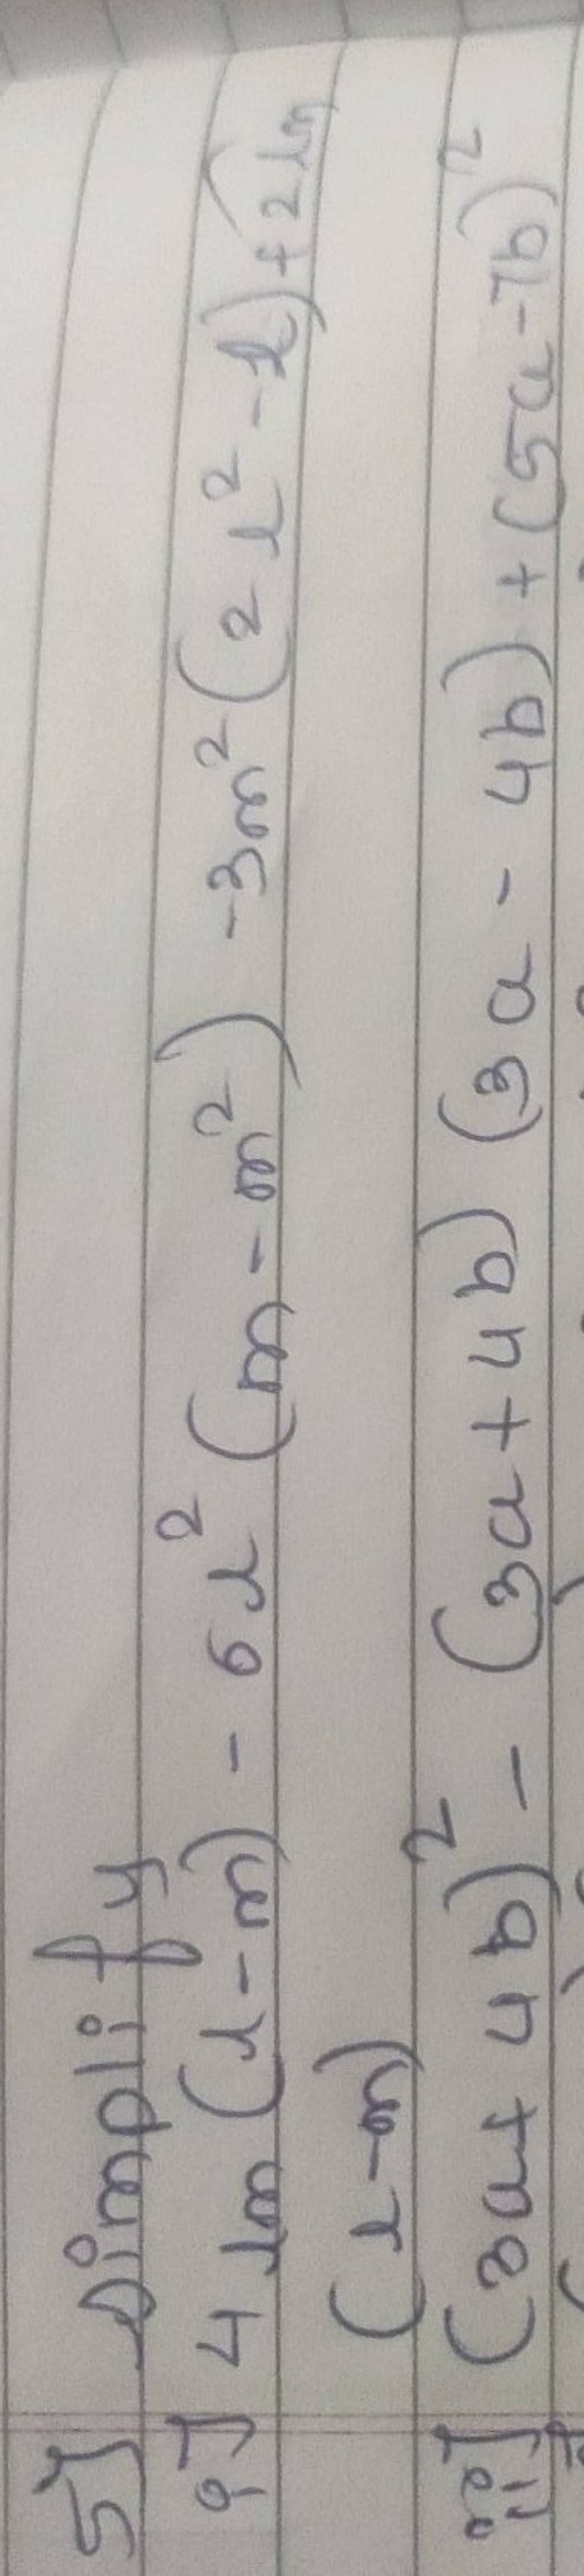 5] Simplify
i] 4lm (l-m) - 6l² (m-m²) -3m² (2l²-l)+2lm
(l-m)
ii] (3a+4b)² - (3a+4b) (3a-4b) + (5a-7b)²